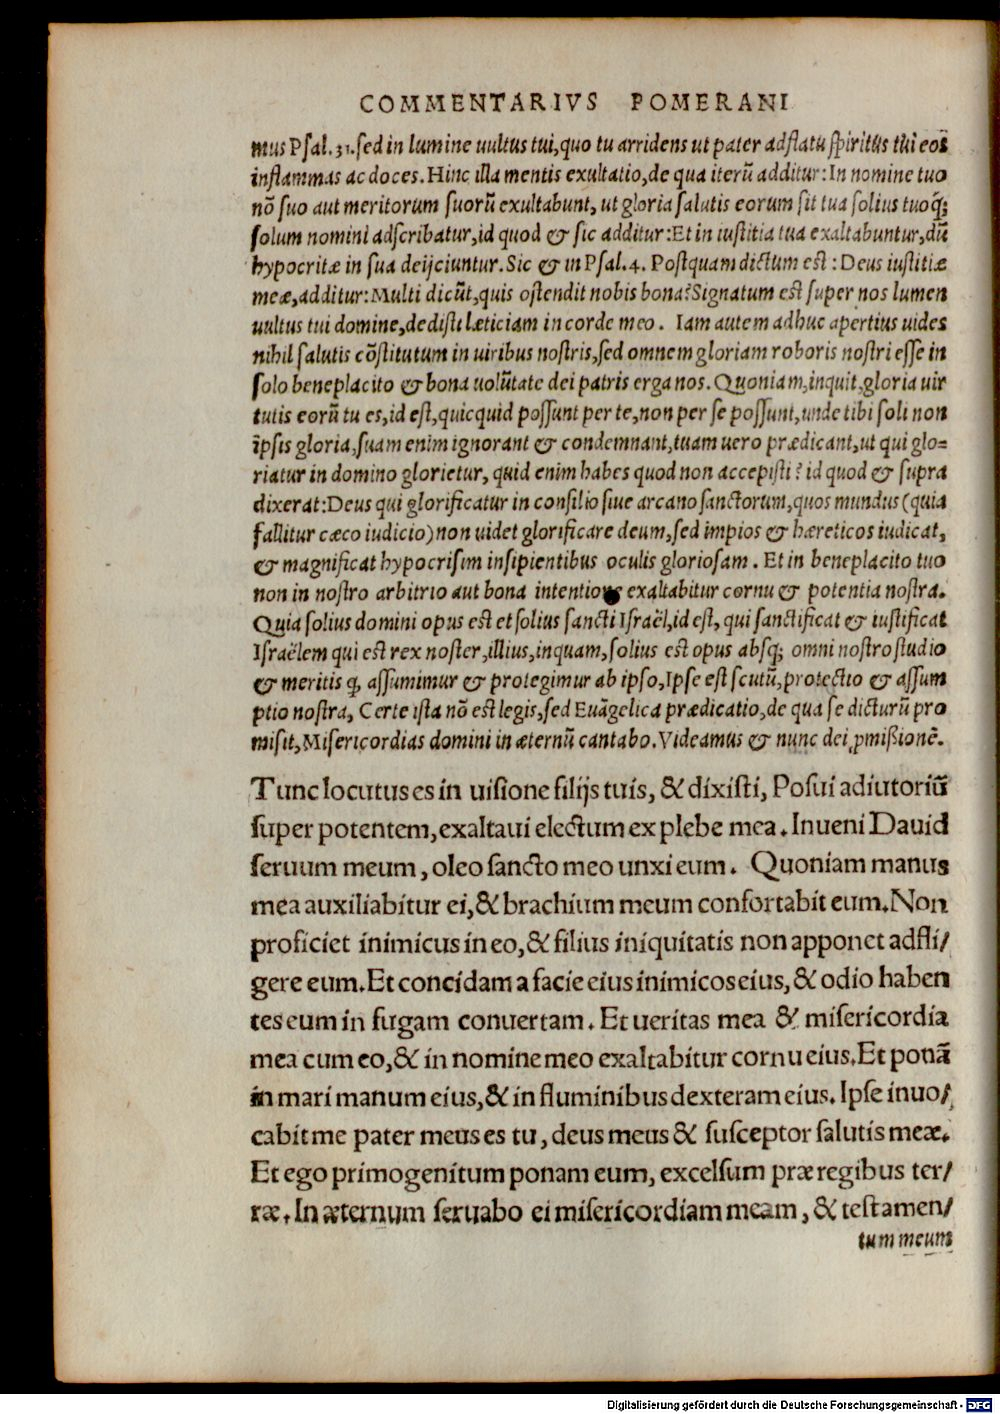 COMMENTARIVS POMERANI
mus Pſal. 31. ſed in lumine uultus tui, quo tu arridens ut pater adflatu ſpiritus tui eos
inflammas ac doces. Hinc illa mentis exultatio, de qua iterũ additur: In nomine tuo
nõ ſuo aut meritorum ſuorũ exultabunt, ut gloria ſalutis eorum ſit tua ſolius tuoq́;
ſolum nomini adſcribatur, id quod & ſic additur: Et in iuſtitia tua exaltabuntur, dũ
hypocritæ in ſua deijciuntur. Sic & in Pſal. 4. Poſtquam dictum eſt: Deus iuſtitiæ
meæ, additur: Multi dicũt, quis oſtendit nobis bona? Signatum eſt ſuper nos lumen
uultus tui domine, dediſti læticiam in corde meo. Iam autem adhuc apertius uides
nihil ſalutis cõſtitutum in uiribus noſtris, ſed omnem gloriam roboris noſtri eſſe in
ſolo beneplacito & bona uolũtate dei patris erga nos. Quoniam, inquit, gloria uir
tutis eorũ tu es, id eſt, quicquid poſſunt per te, non per ſe poſſunt, unde tibi ſoli non
ipſis gloria, ſuam enim ignorant & condemnant, tuam uero prædicant, ut qui glo=
riatur in domino glorietur, quid enim habes quod non accepiſti? id quod & ſupra
dixerat: Deus qui glorificatur in conſilio ſiue arcano ſanctorum, quos mundus (quia
fallitur cæco iudicio) non uidet glorificare deum, ſed impios & hæreticos iudicat,
& magnificat hypocriſim inſipientibus oculis glorioſam. Et in beneplacito tuo
non in noſtro arbitrio aut bona intentione exaltabitur cornu & potentia noſtra.
Quia ſolius domini opus eſt et ſolius ſancti Iſraël, id eſt, qui ſanctificat & iuſtificat
Iſraëlem qui eſt rex noſter, illius, inquam, ſolius eſt opus abſq; omni noſtro ſtudio
& meritis q̨ aſſumimur & protegimur ab ipſo, Ipſe eſt ſcutũ, protectio & aſſum
ptio noſtra, Certe iſta nõ eſt legis, ſed Euãgelica prædicatio, de qua ſe dicturũ pro
miſit, Miſericordias domini in æternũ cantabo. Videamus & nunc dei ꝓmißionẽ.
Tunc locutus es in uiſione filijs tuis, & dixiſti, Poſui adiutoriũ
ſuper potentem, exaltaui electum ex plebe mea. Inueni Dauid
ſeruum meum, oleo ſancto meo unxi eum. Quoniam manus
mea auxiliabitur ei, & brachium meum confortabit eum. Non
proficiet inimicus in eo, & filius iniquitatis non apponet adfli/
gere eum. Et concidam a facie eius inimicos eius, & odio haben
tes eum in fugam conuertam. Et ueritas mea & miſericordia
mea cum eo, & in nomine meo exaltabitur cornu eius. Et ponã
in mari manum eius, & in fluminibus dexteram eius. Ipſe inuo/
cabit me pater meus es tu, deus meus & ſuſceptor ſalutis meæ.
Et ego primogenitum ponam eum, excelſum præ regibus ter/
ræ. In æternum ſeruabo ei miſericordiam meam, & teſtamen/
tum meum
Digitalisierung gefördert durch die Deutsche Forschungsgemeinschaft - DFG